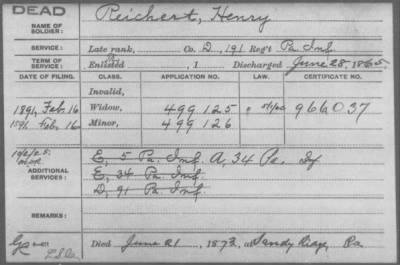 DEAD
NAME OF SOLDIER:
Reichert, Henry
SERVICE:
Late rank, Co. D, 191 Reg't Pa. Inf.
TERM OF SERVICE:
Enlisted , 1 Discharged June 28, 1865
DATE OF FILING. CLASS. APPLICATION NO. LAW. CERTIFICATE NO.
Invalid,
1891, Feb. 16 Widow, 499 125 966037
1891, Feb. 16 Minor, 499 126
ADDITIONAL SERVICES:
E, 5 Pa. Inf. A, 34 Pa. Inf
E, 34 Pa. Inf.
D, 91 Pa. Inf.
REMARKS:
Died June 21, 1872, at Sandy Ridge, Pa.